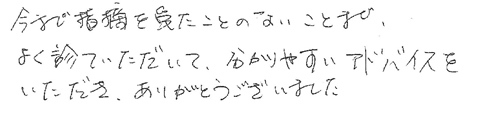 今まで指摘を受たことのないことまで、
よく診ていただいて、分かりやすいアドバイスを
いただき、ありがとうございました